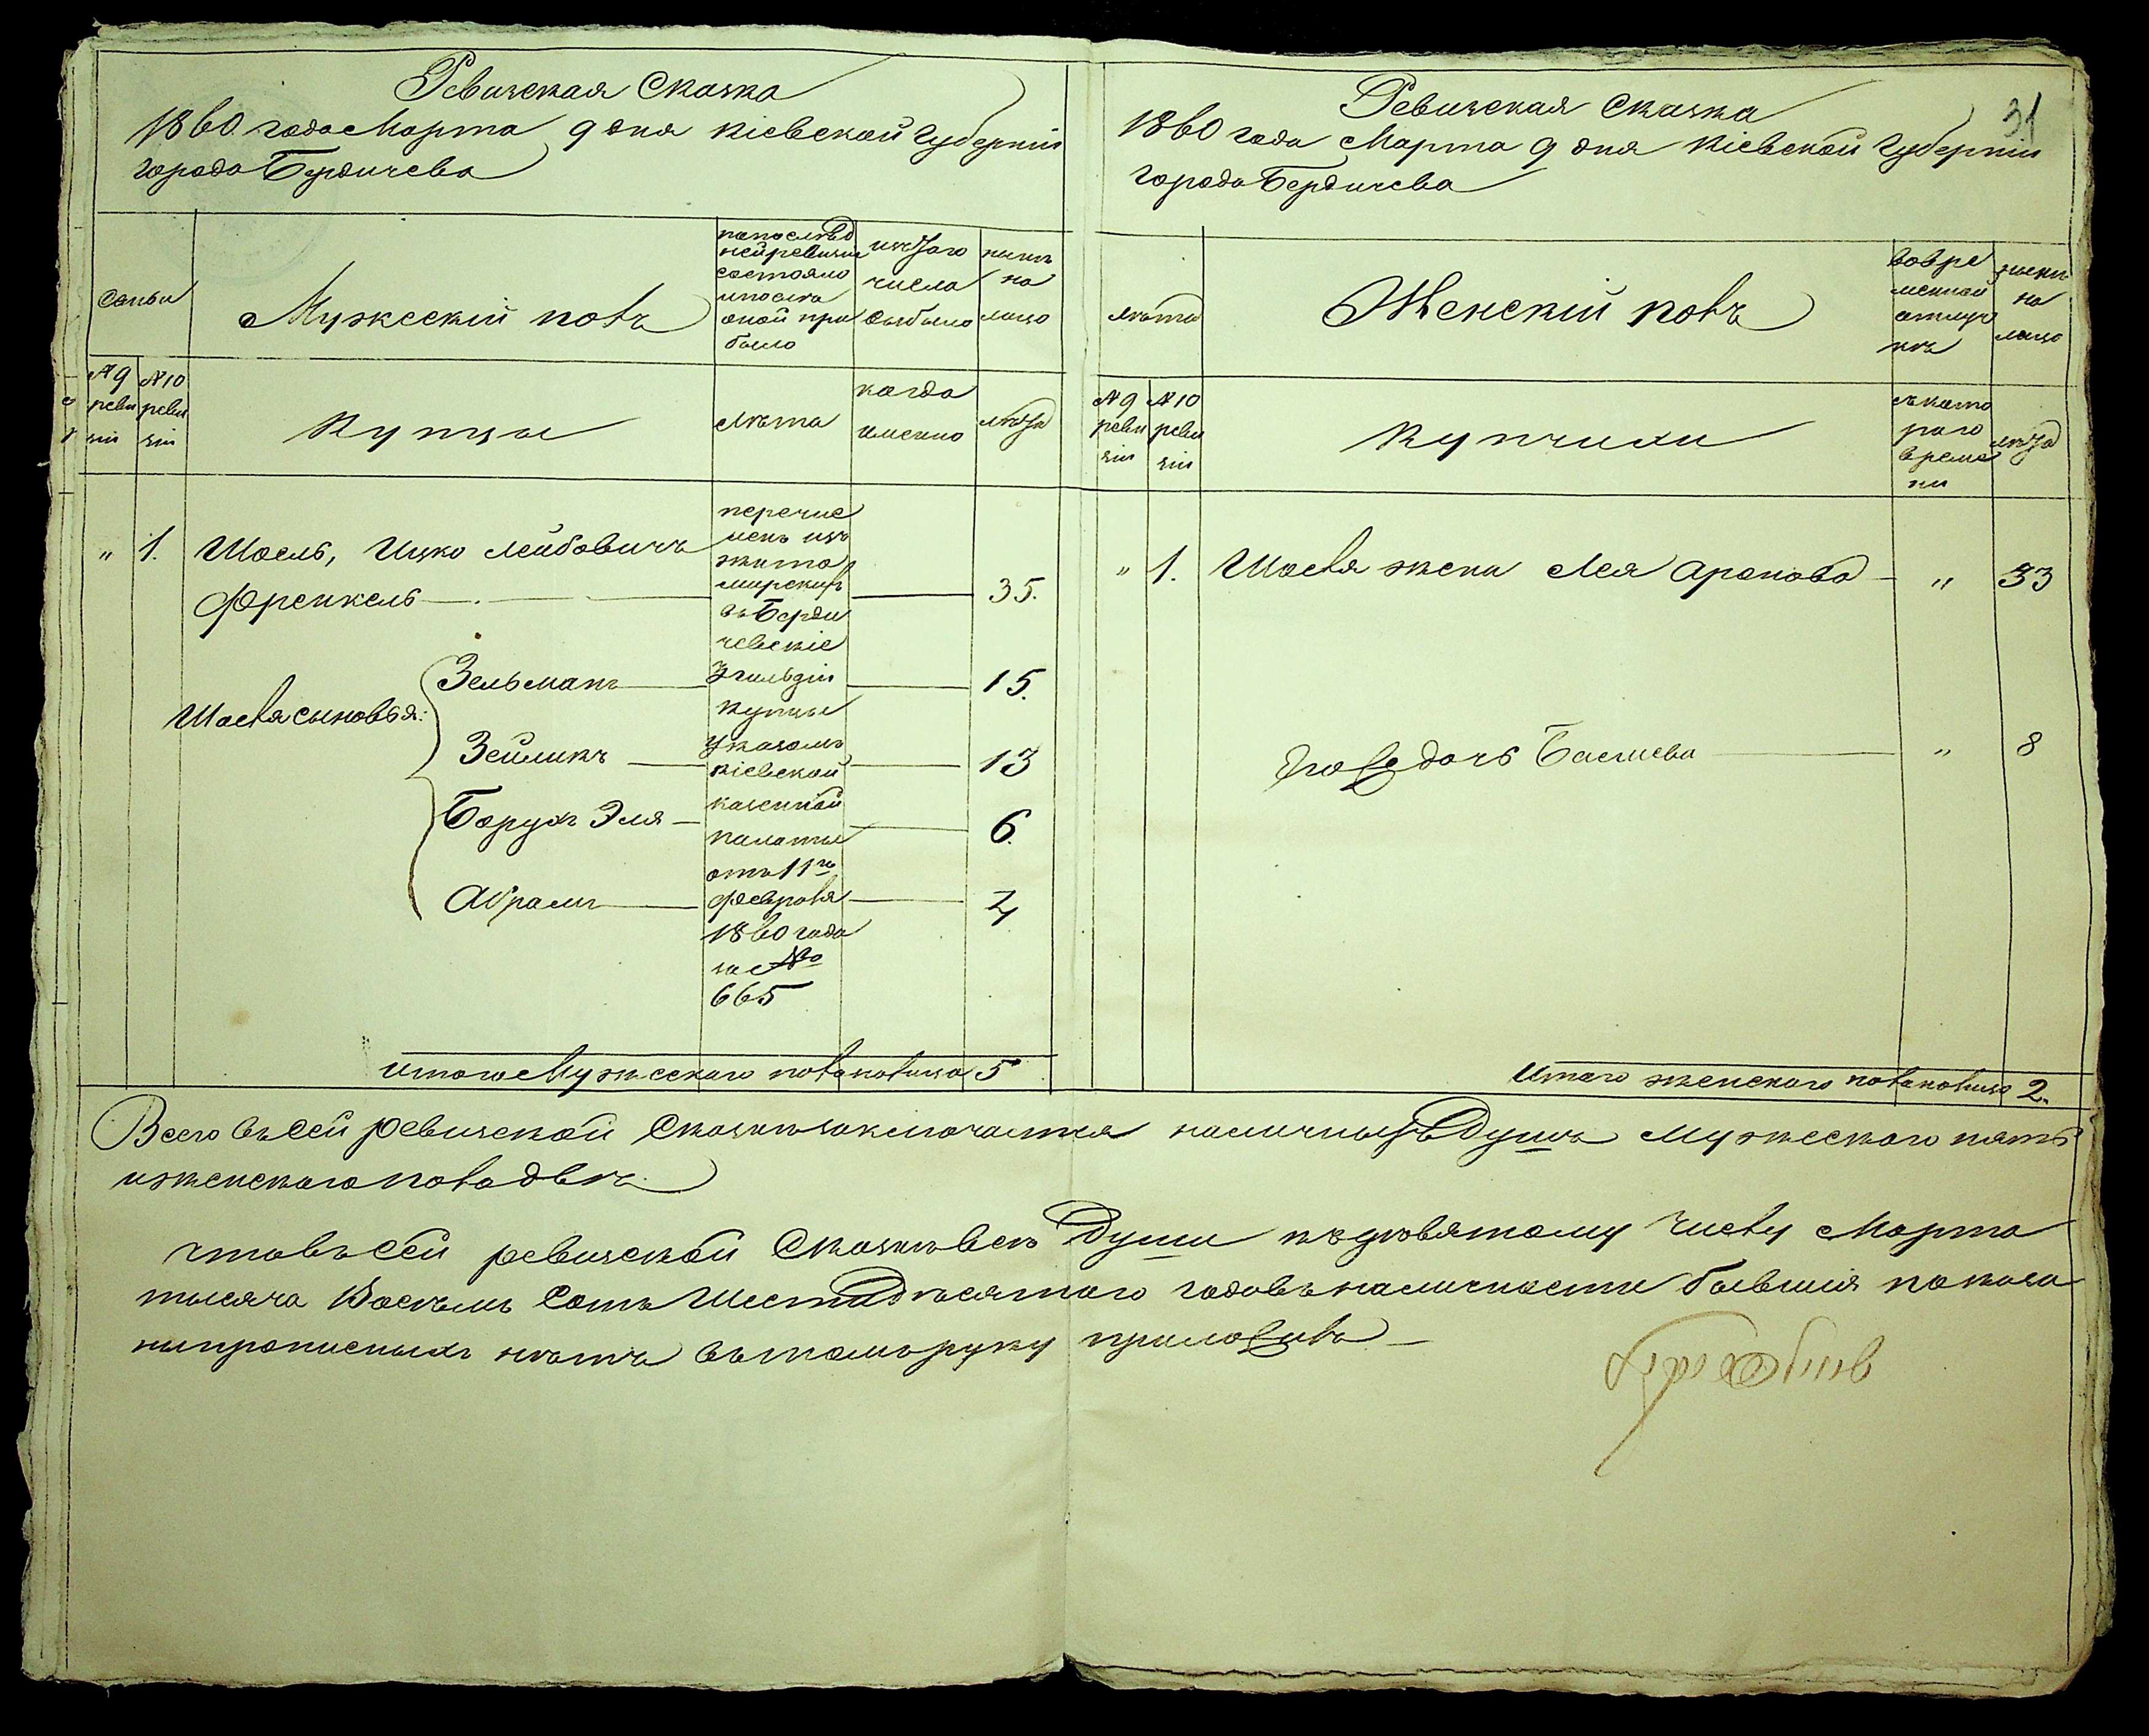 Ревизская Сказка
1860 года Марта 9 дня Кіевской Губерніи
города Бердичева
Семьи
Мужескій полъ
по послѣд
ней ревизіи
состояло
и послѣ
оной при
было
изъ того
числа
выбыло
нынѣ
на
лицо
№ 9
реви
зіи
№ 10
реви
зіи
Купцы
лѣта
когда
именно
лѣта
"
1.
Шоель, Ицко Лейбовичъ
Френкель
35.
перечис
ленъ изъ
жито
мирскихъ
въ Берди
чевскіе
3 гильдіи
купцы
указомъ
Кіевской
казенной
палаты
отъ 11го
февраля
1860 года
за №
665
Шоеля сыновья:
Зельманъ
15.
Зейликъ
13
Борухъ Эля
6.
Абрамъ
4
Итого Мужескаго пола налицо 5
31
Ревизская Сказка
1860 года Марта 9 дня Кіевской Губерніи
города Бердичева
лѣта
Женскій полъ
во вре
менной
отлуч
кѣ
нынѣ
на
лицо
№ 9
реви
зіи
№ 10
реви
зіи
Купчихи
съ кото
раго
време
ни
лѣта
"
1.
Шоеля жена Лея Аронова
"
33
дочь Басшева
"
8
Итого женскаго пола налицо 2.
Всего въ сей ревизской Сказкѣ заключается наличныхъ Душъ Мужескаго пять
и женскаго пола двѣ
Что въ сей ревизской Сказкѣ всѣ Души къ девятому числу Марта
тысяча Восемь Сотъ Шестидесятаго года въ наличности бывшія показа
ны прописныхъ нѣтъ въ томъ руку приложилъ